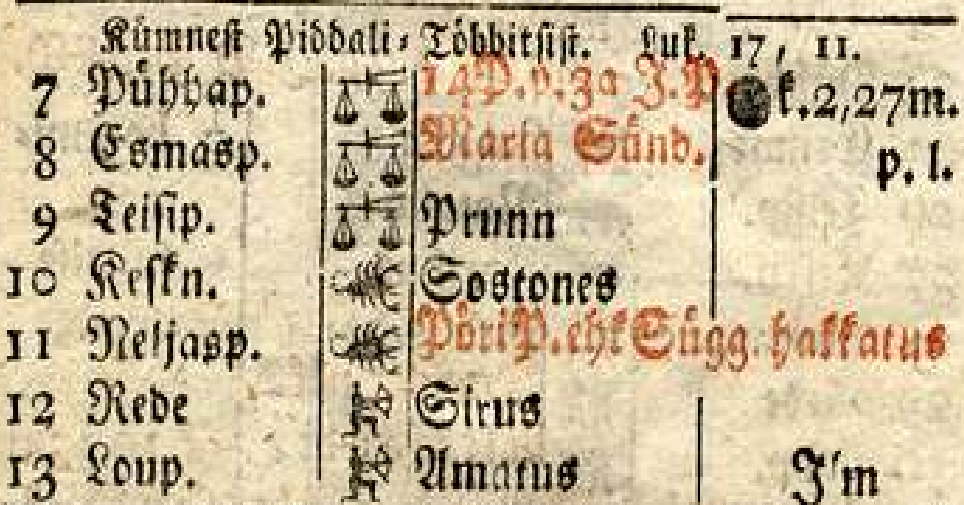 Kümnest Piddali-Többitsist. Luk. 17, 11.
7 Pühhap. 14P.p.3a J.P k.2,27m.
8 Esmasp. Maria Sünd. p. l.
9 Teisip. Prunn
10 Keskn. Sostones
11 Neljasp. PöriP.ehk Sügg. hakkatus
12 Rede Sirus
13 Loup. Amatus J'm